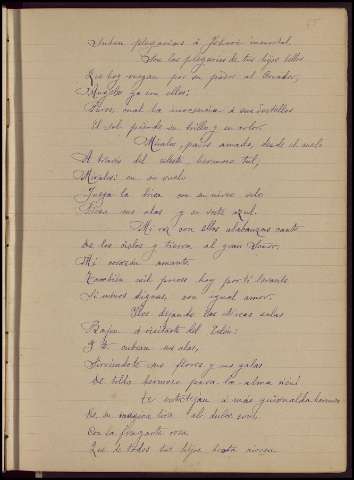 Suban plegarias á Jehová inmortal.
Son las plegarias de tus hijos bellos
Que hoy ruegan por su padre al Creador,
ya con ellos;
Pues, cual la inocencia á sus destellos
El sol pierde su brillo y su color.
Míralos, padre amado, desde el suelo
A través del celeste, hermoso tul,
Míralos: en su vuelo
Juega la brisa con su níveo velo
Riza sus alas y su veste azul.
Mi voz con ellos alabanzas canta
De los cielos y tierra al gran Señor.
Mi corazón amante
También mil preces hoy por ti levanta
Si menos dignas, con igual amor.
Ellos dejando las etéreas salas
Bajan á visitarte del Edén:
Y te cubren sus alas,
Sirviéndote sus flores y sus galas
De toldo hermoso para la alma
te entretejan á más guirnalda hermosa
De su
Con la fragante rosa
Que de todos tus hijos brota